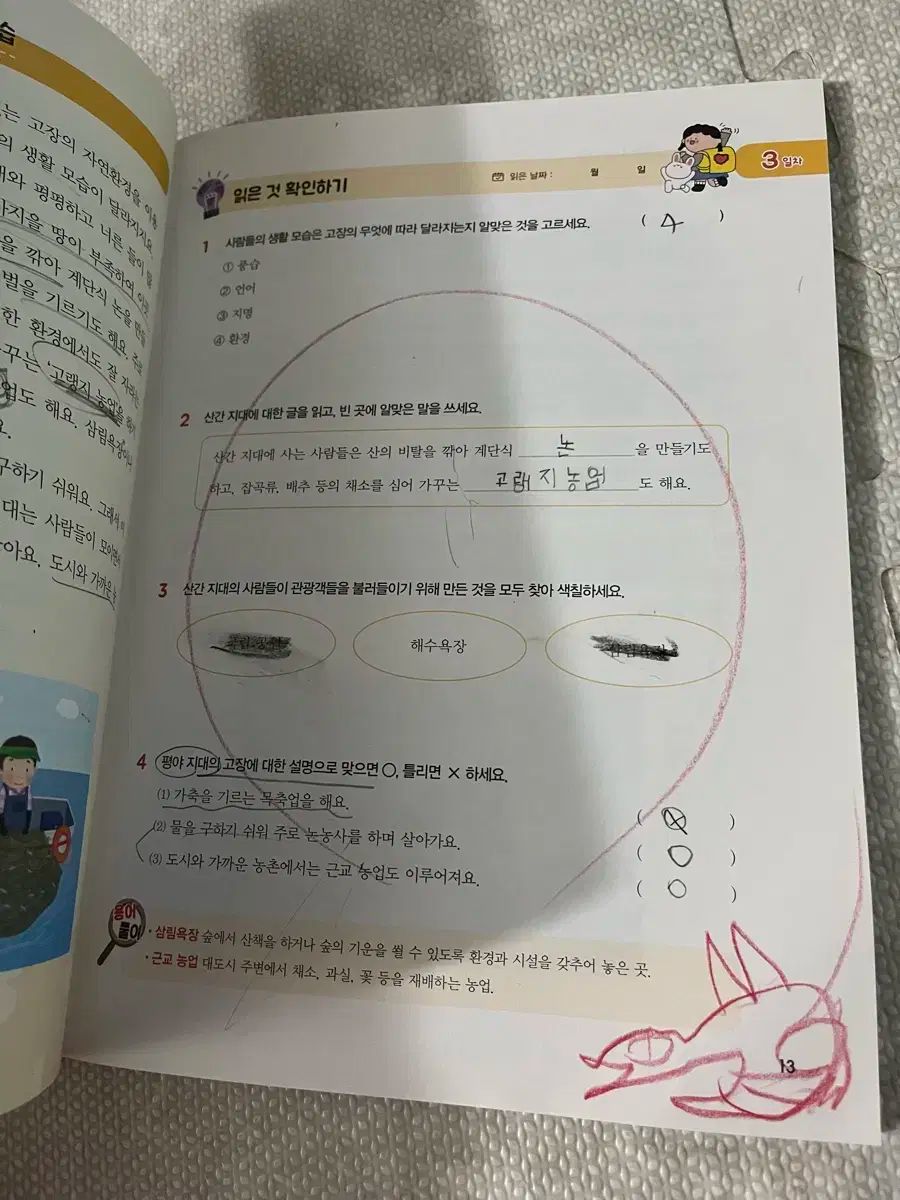 습
는 고장의 자연환경을 이용
의 생활 모습이 달라지지요.
대와 평평하고 너른 들이 많
가지을 땅이 부족하여 이곳
을 깎아 계단식 논을 만들
벌을 기르기도 해요. 주로
한 환경에서도 잘 자라는
꾸는 '고랭지 농업'을 하기
업도 해요. 삼림욕장이나
요.
구하기 쉬워요. 그래서
대는 사람들이 모이면서
아요. 도시와 가까운 농
읽은 것 확인하기
읽은 날짜 : 월 일
3일차
1 사람들의 생활 모습은 고장의 무엇에 따라 달라지는지 알맞은 것을 고르세요. ( 4 )
① 풍습
② 언어
③ 지명
④ 환경
2 산간 지대에 대한 글을 읽고, 빈 곳에 알맞은 말을 쓰세요.
산간 지대에 사는 사람들은 산의 비탈을 깎아 계단식 논 을 만들기도
하고, 잡곡류, 배추 등의 채소를 심어 가꾸는 고랭지농업 도 해요.
3 산간 지대의 사람들이 관광객들을 불러들이기 위해 만든 것을 모두 찾아 색칠하세요.
해수욕장 삼림욕장
4 평야 지대의 고장에 대한 설명으로 맞으면 ○, 틀리면 × 하세요.
(1) 가축을 기르는 목축업을 해요. ( × )
(2) 물을 구하기 쉬워 주로 논농사를 하며 살아가요. ( ○ )
(3) 도시와 가까운 농촌에서는 근교 농업도 이루어져요. ( ○ )
용어 풀이
• 삼림욕장 숲에서 산책을 하거나 숲의 기운을 쐴 수 있도록 환경과 시설을 갖추어 놓은 곳.
• 근교 농업 대도시 주변에서 채소, 과실, 꽃 등을 재배하는 농업.
13